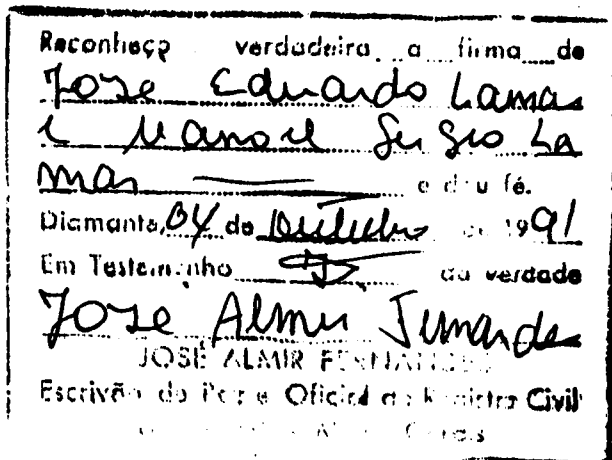 Reconheço verdadeira a firma de
Jose Eduardo Lamas
e Manoel Sergio La
mas e dou fé.
Diamante, 04 de Outubro de 1991
Em Testemunho da verdade
Jose Almir Fernandes
JOSÉ ALMIR FERNANDES
Escrivão de Paz e Oficial do Registro Civil